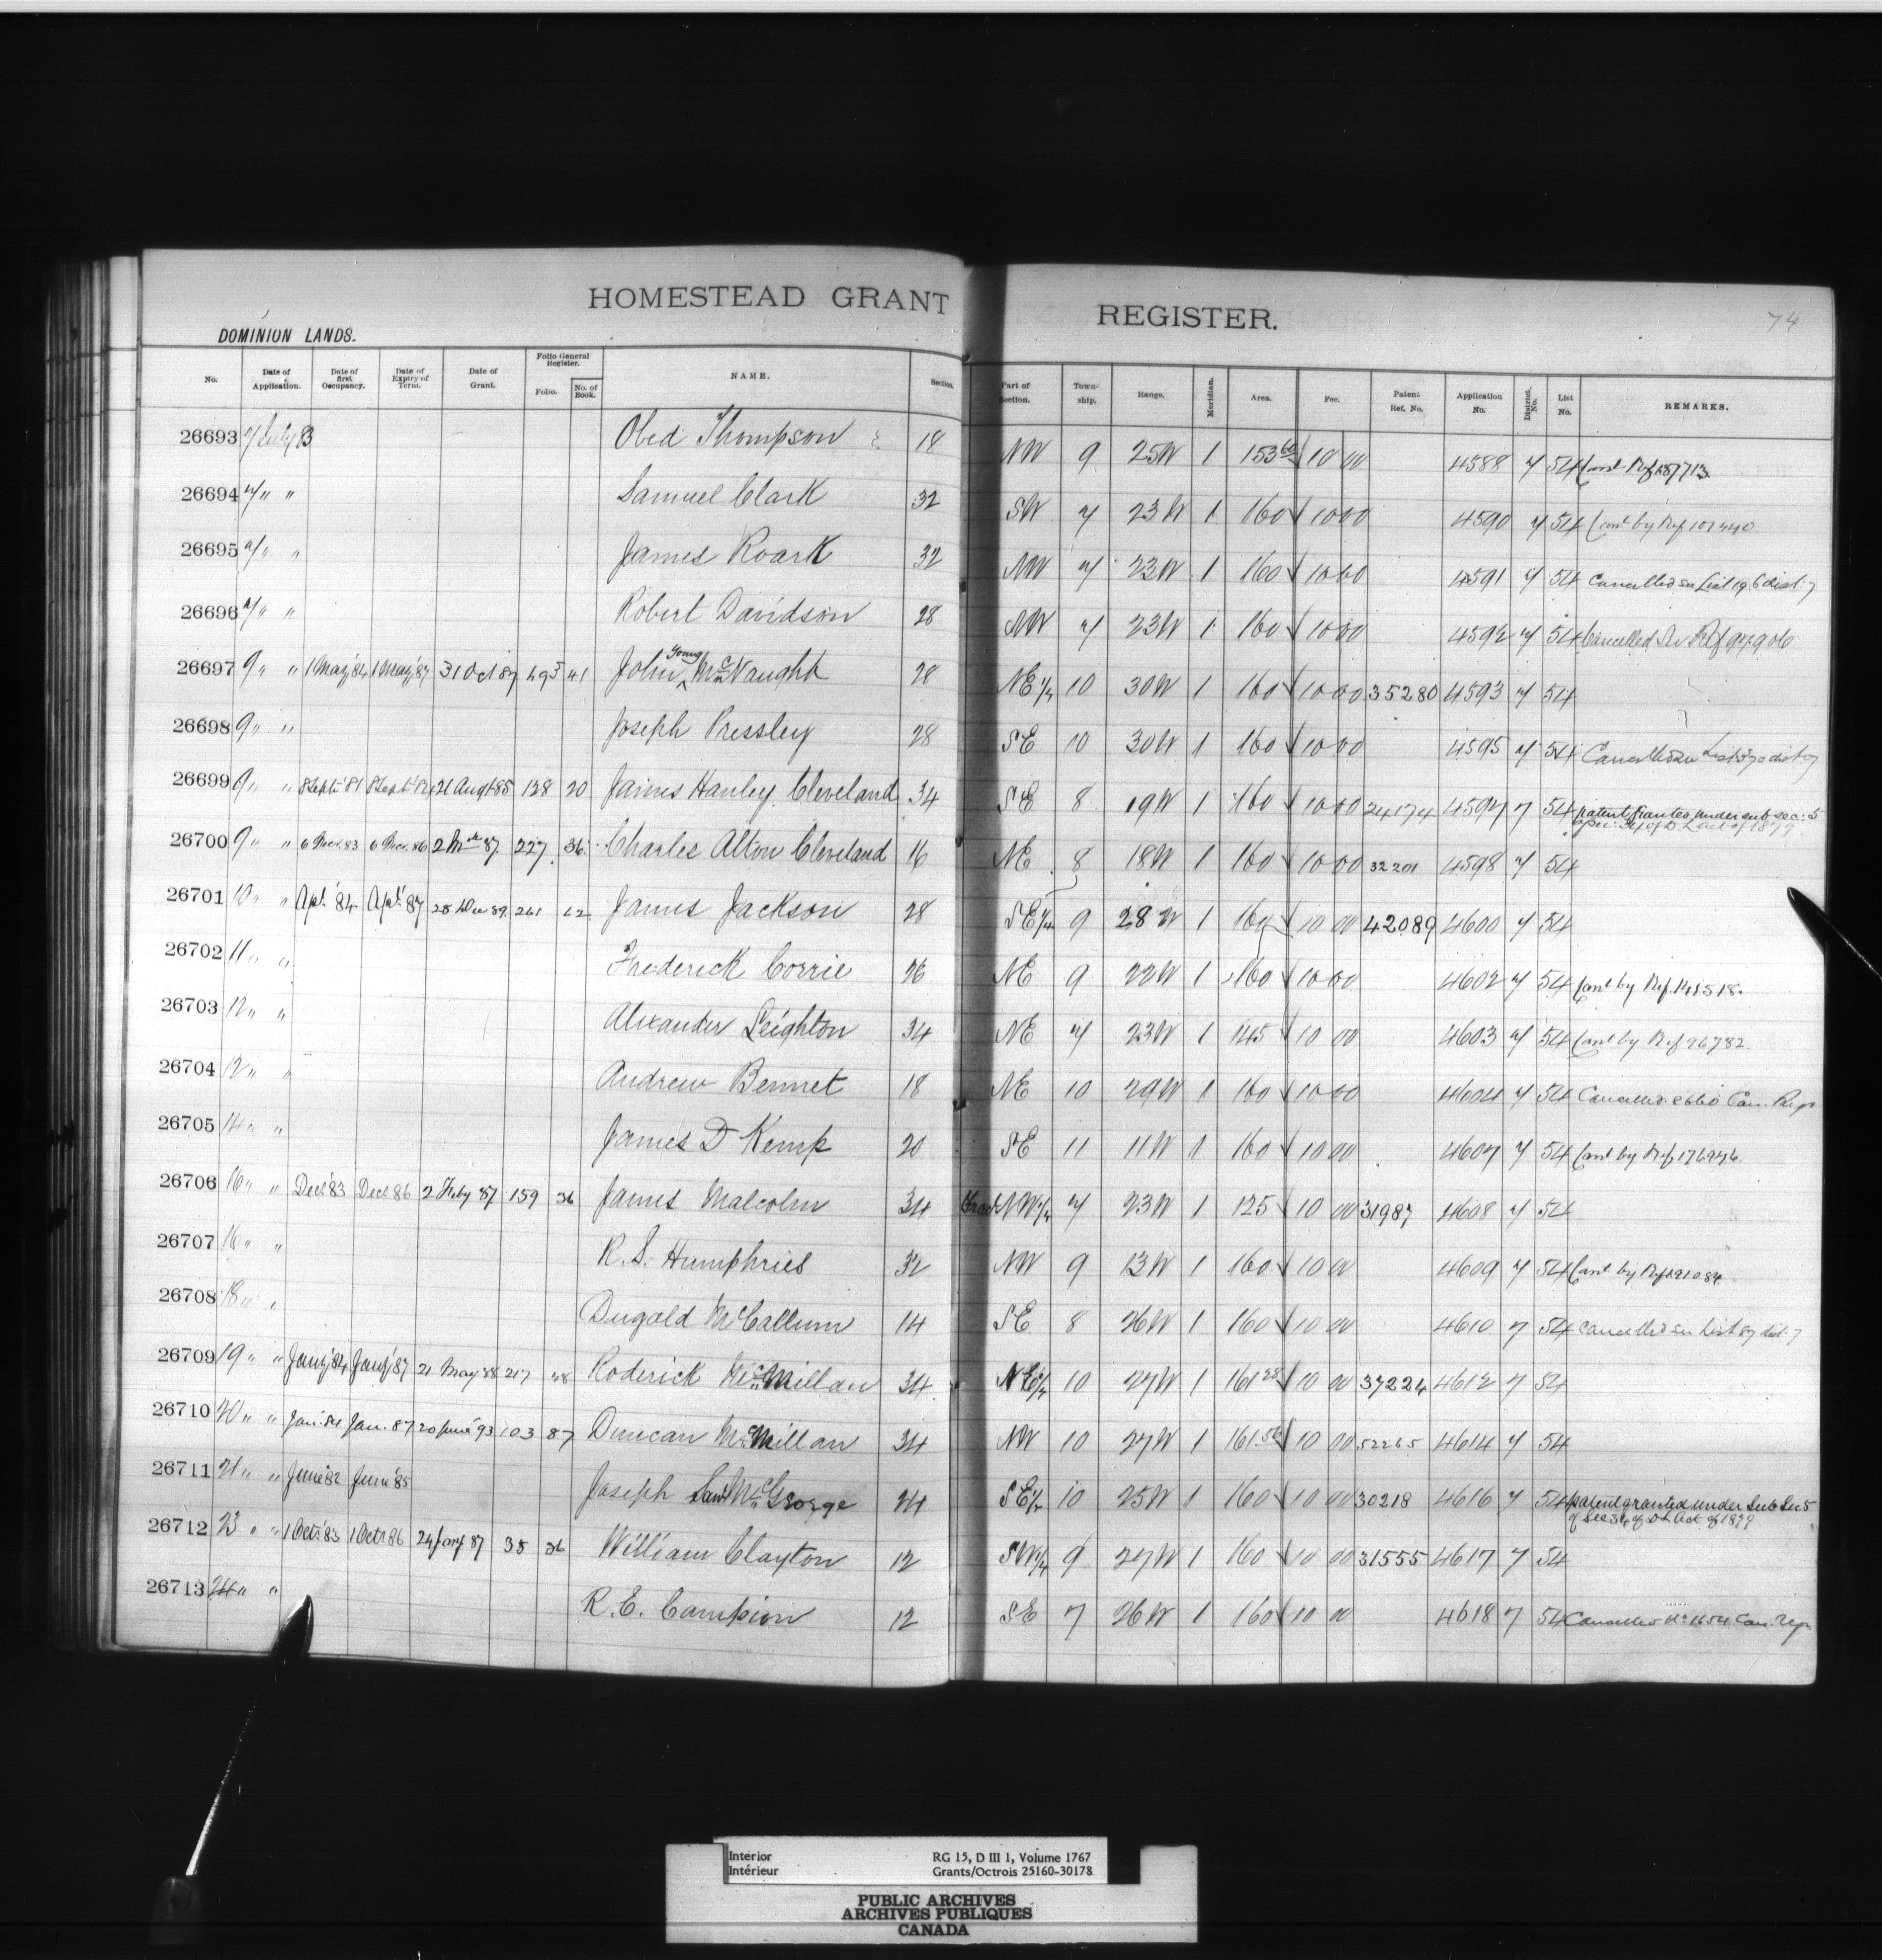 HOMESTEAD GRANT REGISTER. 74
DOMINION LANDS.
No. Date of Application. Date of first Occupancy. Date of Expiry of Term. Date of Grant. Folio General Register. Folio. No. of Book. NAME. Section. Part of Section. Town-ship. Range. Meridian. Area. Fee. Patent Ref. No. Application No. District No. List No. REMARKS.
26693 7 July 83 Obed Thompson 18 NW 9 25W 1 153 60 10 00 4588 7 54 Canc Ref 187713
26694 7 " " Samuel Clark 32 SW 7 23W 1 160 10 00 4590 7 54 Canc by Ref
26695 7 " " James Roark 32 NW 7 23W 1 160 10 00 4591 7 54 Cancelled see List 196 dist. 7
26696 7 " " Robert Davidson 28 NW 7 23W 1 160 10 00 4592 7 54 Cancelled See Ref
26697 9 " " 1 May '84 1 May '87 31 Oct 87 493 41 John Young McNaught 28 NE 1/4 10 30W 1 160 10 00 35280 4593 7 54
26698 9 " " Joseph Pressley 28 SE 10 30W 1 160 10 00 4595 7 54 Cancelled see List
26699 9 " " 8 Sept '81 8 Sept 21 Augt 85 128 20 James Hanley Cleveland 34 SE 8 19W 1 160 10 00 24174 4597 7 54 patent granted under sub sec: 5
of sec: 34 of D. L. act of 1879
26700 9 " " 6 Nov. 83 6 Nov. 86 2 Mch 87 227 36 Charles Alton Cleveland 16 NE 8 18W 1 160 10 00 32201 4598 7 54
26701 10 " " Apl. '84 Apl. '87 28 Dec 89 261 62 James Jackson 28 SE 1/4 9 28W 1 160 10 00 42089 4600 7 54
26702 11 " " Frederick Corrie 26 NE 9 22W 1 160 10 00 4602 7 54 Canc by Ref. 141518.
26703 12 " " Alexander Leighton 34 NE 7 23W 1 145 10 00 4603 7 54 Canc by Ref 96782.
26704 12 " " Andrew Bennet 18 NE 10 29W 1 160 10 00 4604 7 54 Cancelled Can. Regr
26705 14 " " James D Kemp 20 SE 11 11W 1 160 10 00 4607 7 54 Canc by Ref 176976
26706 16 " " Decr 83 Decr 86 2 Feby 87 159 36 James Malcolm 34 Frac NW 1/4 7 23W 1 125 10 00 31987 4608 7 54
26707 16 " " R. S. Humphries 32 NW 9 13W 1 160 10 00 4609 7 54 Canc by Ref 191084
26708 18 " " Dugald McCallum 14 SE 8 26W 1 160 10 00 4610 7 54 Cancelled see List 87 dist. 7
26709 19 " " Jany '84 Jany '87 21 May 88 217 48 Roderick McMillan 34 NE 1/4 10 27W 1 161 28 10 00 37224 4612 7 54
26710 20 " " Jan. 84 Jan. 87 20 June 93 103 87 Duncan McMillan 34 NW 10 27W 1 161.56 10 00 52265 4614 7 54
26711 21 " " June '82 June '85 Joseph McGeorge 24 SE 1/4 10 25W 1 160 10 00 30218 4616 7 54 patent granted under Sub Sec 5
of Sec 34 of D L Act of 1879
26712 23 " " 1 Oct. 83 1 Oct. 86 24 Jany 87 38 36 William Clayton 12 SW 1/4 9 27W 1 160 10 00 31555 4617 7 54
26713 24 " " R. E. Campion 12 SE 7 26W 1 160 10 00 4618 7 54 Cancelled No 1654 Can. Regr.
Interior RG 15, D III 1, Volume 1767
Intérieur Grants/Octrois 25160-30178
PUBLIC ARCHIVES
ARCHIVES PUBLIQUES
CANADA